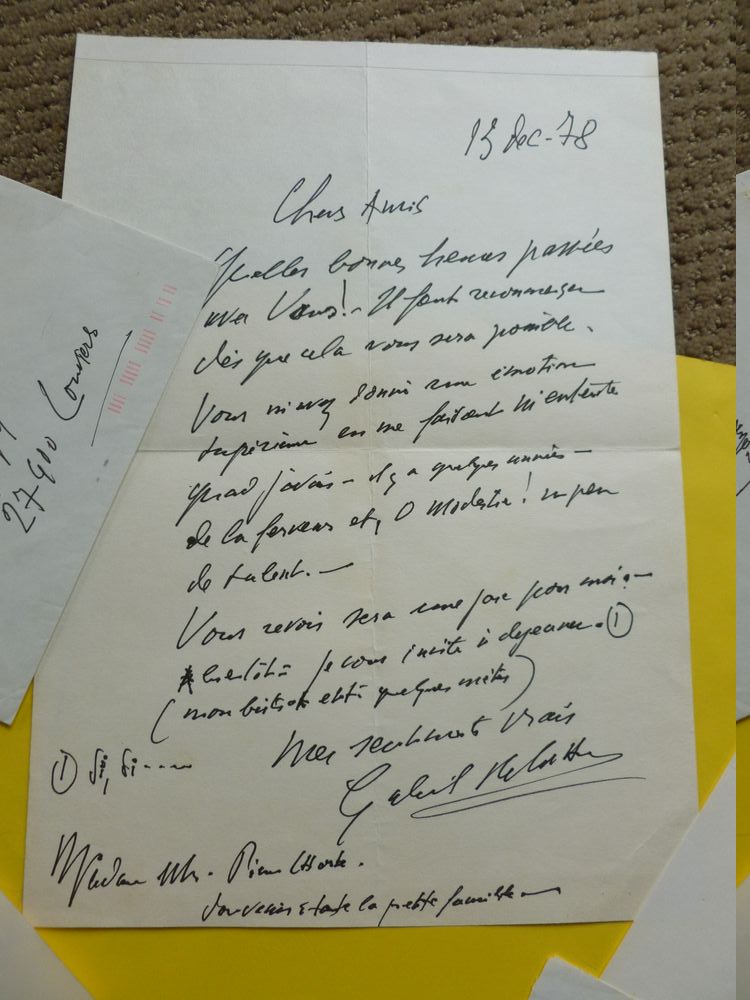 15 Dec - 78
Chers Amis
Quelles bonnes heures passées
avec Vous! - Il faut recommencer
dès que cela vous sera possible.
Vous m'avez donné une émotion
en me faisant
quand j'avais - il y a quelques années -
de la ferveur et, O Modestie! un peu
de talent. -
Vous revoir sera une joie pour moi. -
bientôt - je vous invite à déjeuner. ①
(mon bistrot est à quelques mètres)
Mes sentiments vrais
Gabriel
① Si, Si - - - -
Madame Mr. Pierre
Souvenirs à toute la petite famille
27400 Louviers